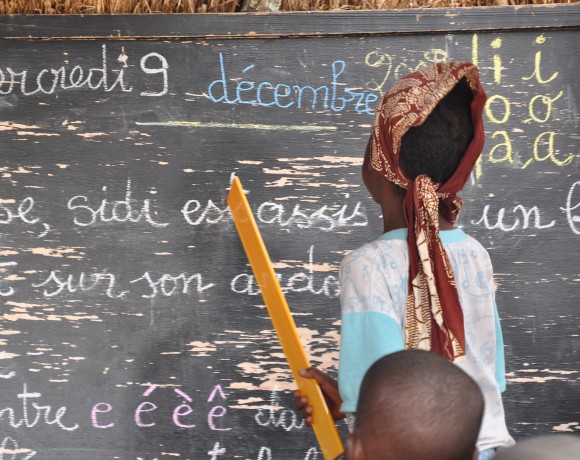 ercredi 9 décembre 2008 i i
o o
a a
se, Sidi est assis un b
sur son ado
ntre e é è ê da